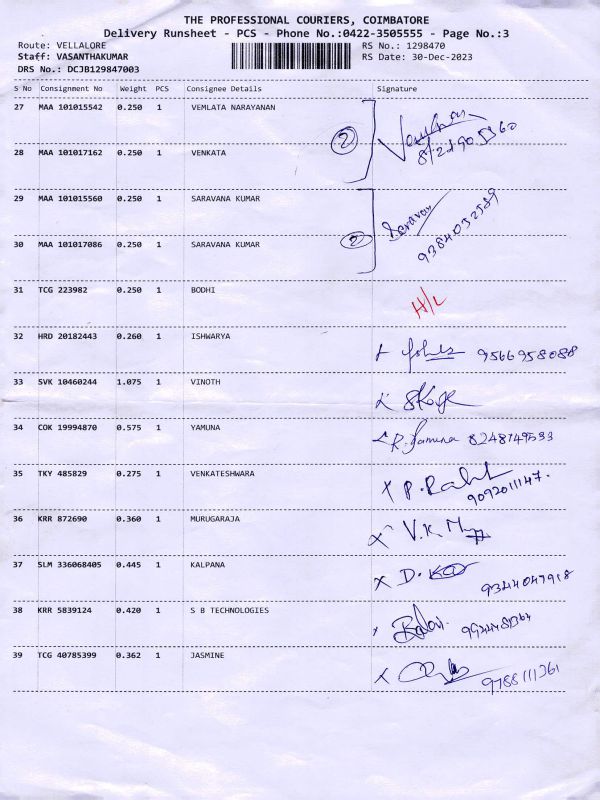 THE PROFESSIONAL COURIERS, COIMBATORE
Delivery Runsheet - PCS - Phone No.:0422-3505555 - Page No.:3
Route: VELLALORE RS No.: 1298470
Staff: VASANTHAKUMAR RS Date: 30-Dec-2023
DRS No.: DCJB129847003
S No Consignment No Weight PCS Consignee Details Signature
27 MAA 101015542 0.250 1 VEMLATA NARAYANAN
2
28 MAA 101017162 0.250 1 VENKATA
29 MAA 101015560 0.250 1 SARAVANA KUMAR
Saravan
9384052589
30 MAA 101017086 0.250 1 SARAVANA KUMAR
2
31 TCG 223982 0.250 1 BODHI
H/L
32 HRD 20182443 0.260 1 ISHWARYA
9566958088
33 SVK 10460244 1.075 1 VINOTH
34 COK 19994870 0.575 1 YAMUNA
R. Yamuna 8248749533
35 TKY 485829 0.275 1 VENKATESHWARA
9092011147.
36 KRR 872690 0.360 1 MURUGARAJA
37 SLM 336068405 0.445 1 KALPANA
9344047918
38 KRR 5839124 0.420 1 S B TECHNOLOGIES
39 TCG 40785399 0.362 1 JASMINE
9788111361